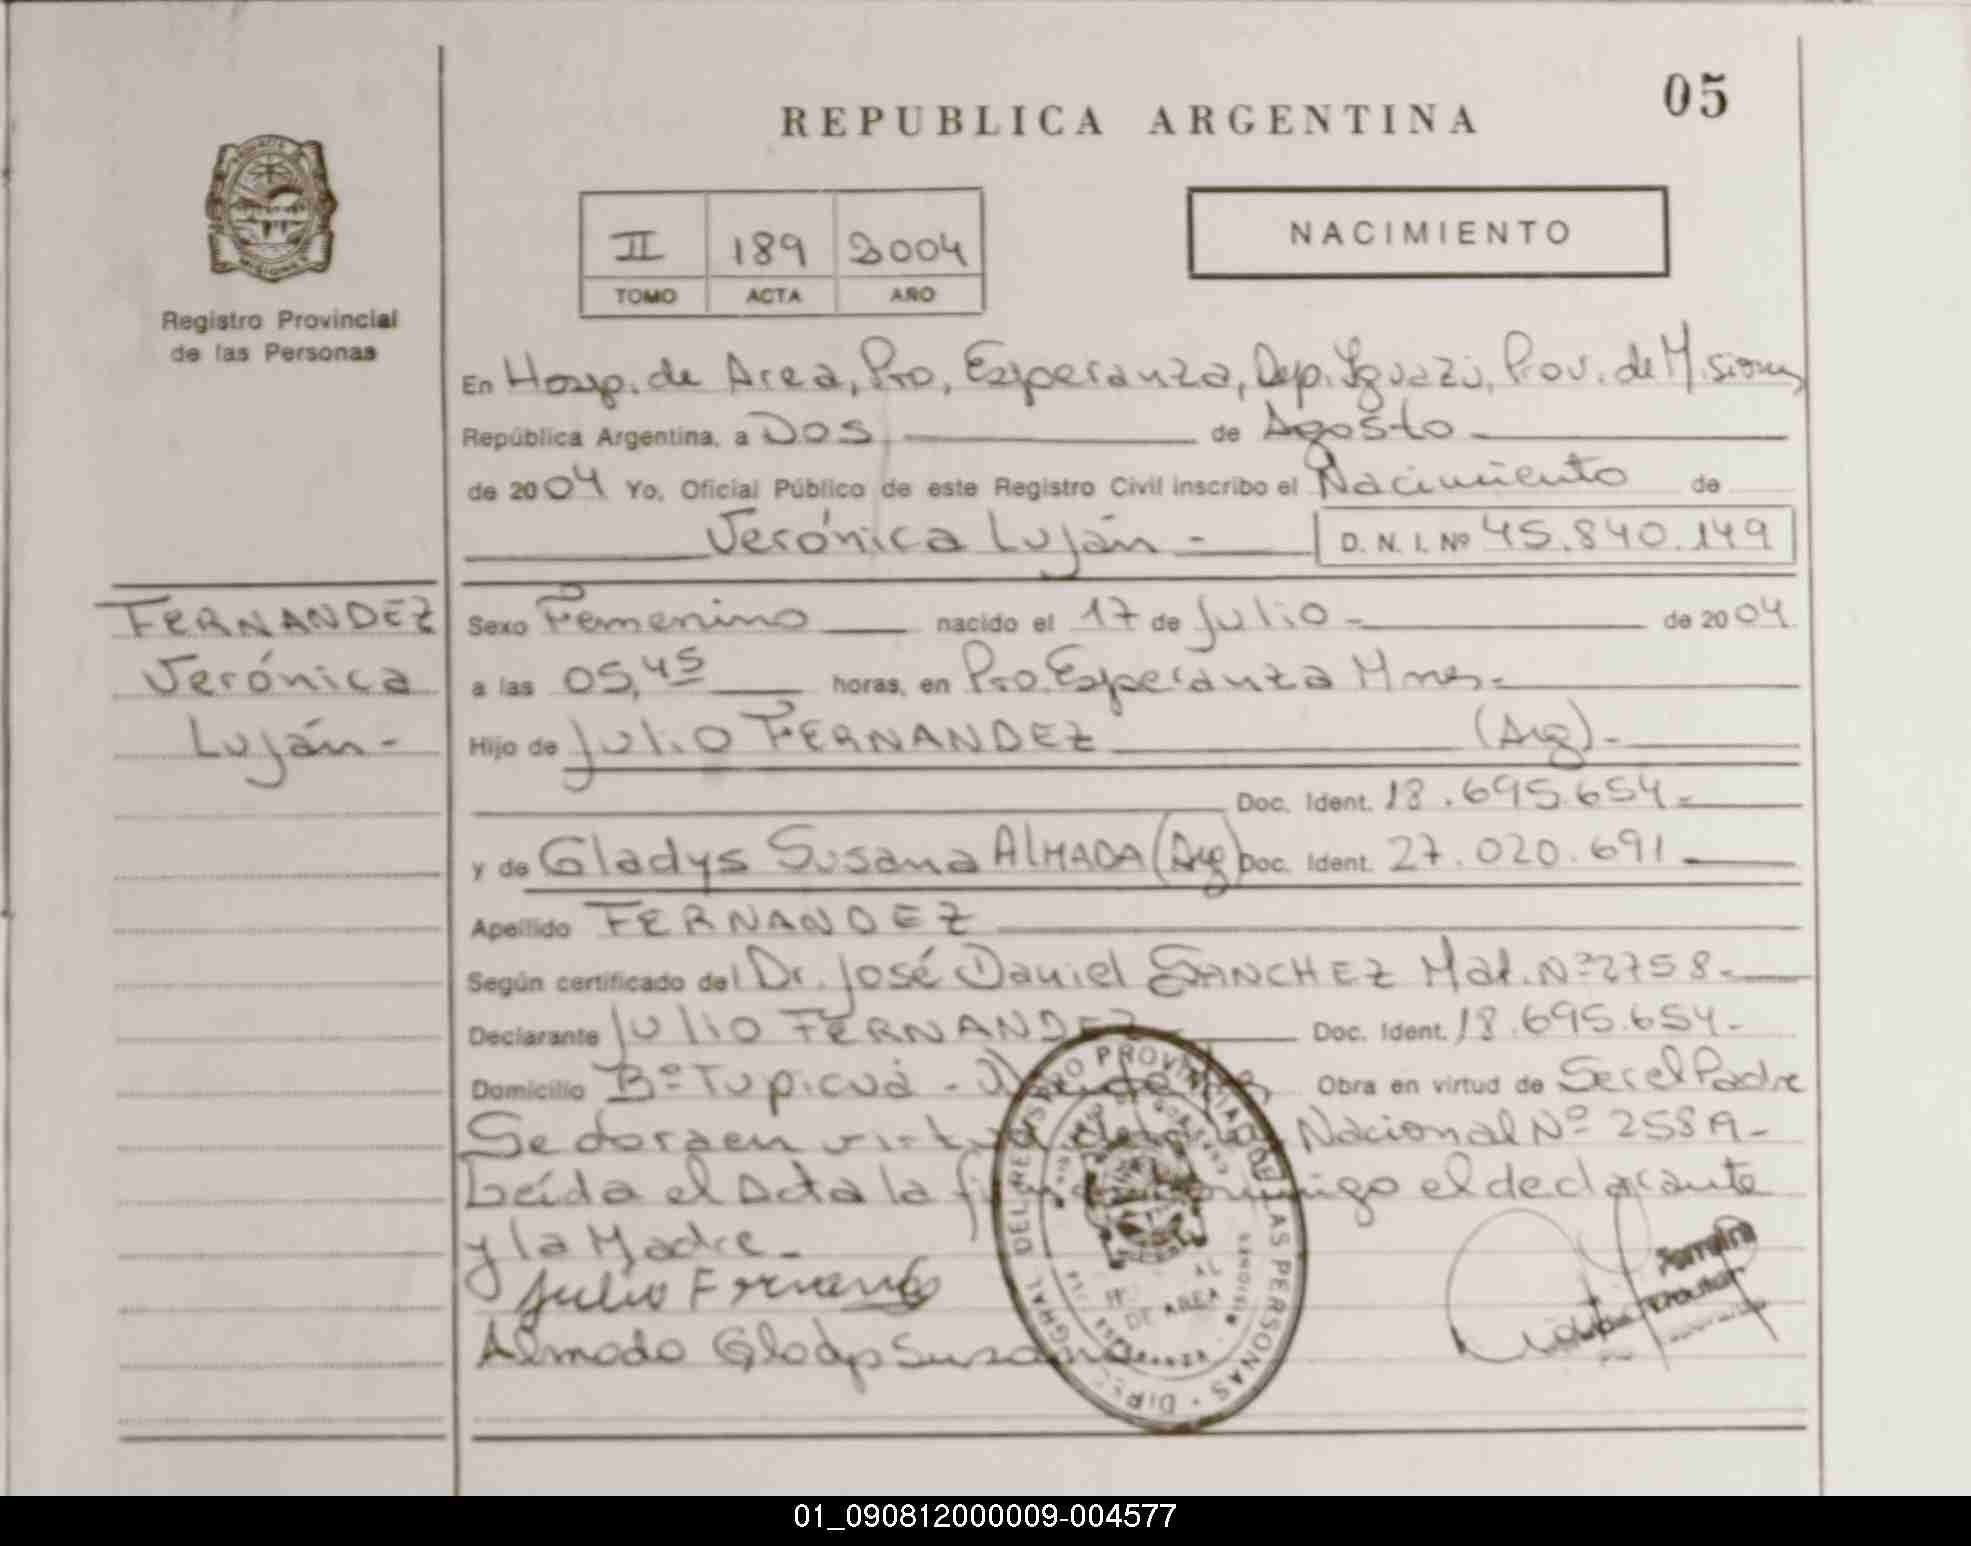 05
REPUBLICA ARGENTINA
NACIMIENTO
II 189 2004
TOMO ACTA AÑO
MISIONES
Registro Provincial
de las Personas
En Hosp. de Area, Pto, Esperanza, Dep. Iguazú, Prov. de Misiones
República Argentina, a Dos de Agosto -
de 2004 Yo, Oficial Público de este Registro Civil inscribo el Nacimiento de
Verónica Luján - D. N. I. Nº 45.840.149
FERNANDEZ
Verónica
Luján -
Sexo Femenino nacido el 17 de Julio - de 2004
a las 05,45 horas, en Pto. Esperanza Mnes -
Hijo de Julio FERNANDEZ (Arg) -
Doc. Ident. 18.695.654 -
y de Gladys Susana ALMADA (Arg) Doc. Ident. 27.020.691
Apellido FERNANDEZ
Según certificado del Dr. José Daniel SANCHEZ Mat. Nº 2758 -
Declarante Julio FERNANDEZ - Doc. Ident. 18.695.654 -
Domicilio Bº Tupicuá - Obra en virtud de Ser el Padre
Nacional Nº 258
Leída el Acta la el declarante
y la Madre -
Julio Fernandez
Almada Gladys Susana
DEL REGISTRO PROVINCIAL DE LAS PERSONAS
DE AREA
01_090812000009-004577